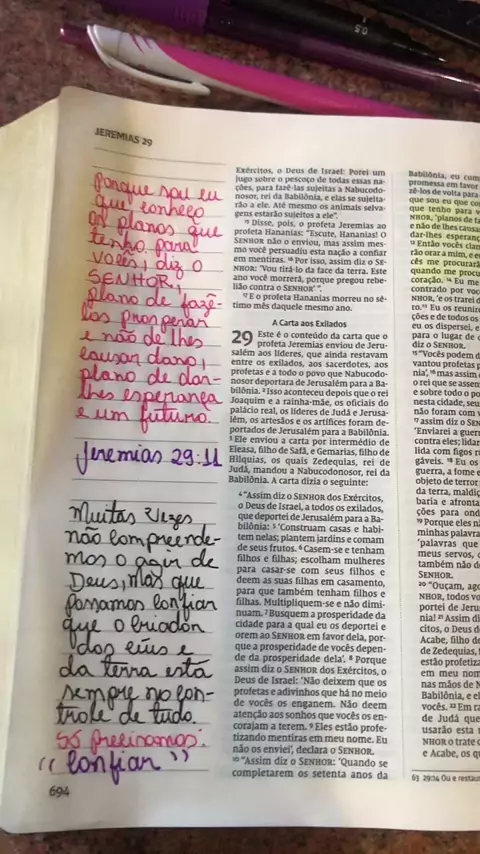 0.5
JEREMIAS 29
Porque sou eu
que conheço
os planos que
tenho para
vocês, diz o
SENHOR,
plano de fazê-
los prosperar
e não de lhes
causar dano,
plano de dar-
lhes esperança
e um futuro.
Jeremias 29:11
Muitas vezes
não compreende-
mos o agir de
Deus, mas que
possamos confiar
que o criador
dos céus e
da terra está
sempre no con-
trole de tudo.
Só precisamos:
"Confiar"
694
Exércitos, o Deus de Israel: Porei um
jugo sobre o pescoço de todas essas na-
ções, para fazê-las sujeitas a Nabucodo-
nosor, rei da Babilônia, e elas se sujeita-
rão a ele. Até mesmo os animais selva-
gens estarão sujeitos a ele".
15 Disse, pois, o profeta Jeremias ao
profeta Hananias: "Escute, Hananias! O
SENHOR não o enviou, mas assim mes-
mo você persuadiu esta nação a confiar
em mentiras. 16 Por isso, assim diz o SE-
NHOR: 'Vou tirá-lo da face da terra. Este
ano você morrerá, porque pregou rebe-
lião contra o SENHOR' ".
17 E o profeta Hananias morreu no sé-
timo mês daquele mesmo ano.
A Carta aos Exilados
29 Este é o conteúdo da carta que o
profeta Jeremias enviou de Jeru-
salém aos líderes, que ainda restavam
entre os exilados, aos sacerdotes, aos
profetas e a todo o povo que Nabucodo-
nosor deportara de Jerusalém para a Ba-
bilônia. 2 Isso aconteceu depois que o rei
Joaquim e a rainha-mãe, os oficiais do
palácio real, os líderes de Judá e Jerusa-
lém, os artesãos e os artífices foram de-
portados de Jerusalém para a Babilônia.
3 Ele enviou a carta por intermédio de
Eleasa, filho de Safã, e Gemarias, filho de
Hilquias, os quais Zedequias, rei de
Judá, mandou a Nabucodonosor, rei da
Babilônia. A carta dizia o seguinte:
4 "Assim diz o SENHOR dos Exércitos,
o Deus de Israel, a todos os exilados,
que deportei de Jerusalém para a Ba-
bilônia: 5 'Construam casas e habi-
tem nelas; plantem jardins e comam
de seus frutos. 6 Casem-se e tenham
filhos e filhas; escolham mulheres
para casar-se com seus filhos e
deem as suas filhas em casamento,
para que também tenham filhos e
filhas. Multipliquem-se e não dimi-
nuam. 7 Busquem a prosperidade da
cidade para a qual eu os deportei e
orem ao SENHOR em favor dela, por-
que a prosperidade de vocês depen-
de da prosperidade dela'. 8 Porque
assim diz o SENHOR dos Exércitos, o
Deus de Israel: 'Não deixem que os
profetas e adivinhos que há no meio
de vocês os enganem. Não deem
atenção aos sonhos que vocês os en-
corajam a terem. 9 Eles estão profe-
tizando mentiras em meu nome. Eu
não os enviei', declara o SENHOR.
10 "Assim diz o SENHOR: 'Quando se
completarem os setenta anos da
Babilônia, eu cum
promessa em favor
zê-los de volta para
que sou eu que con
que tenho para v
NHOR, 'planos de fa
e não de lhes causa
dar-lhes esperança
12 Então vocês clam
rão orar a mim, e e
cês me procurarã
quando me procu
coração. 14 Eu me
contrado por você
NHOR, 'e os trarei d
ro. 15 Eu os reunire
ções e de todos os
eu os dispersei, e
para o lugar de o
diz o SENHOR.
15 "Vocês podem d
vantou profetas p
nia', 16 mas assim d
o rei que se assen
e sobre todo o po
nesta cidade, seu
não foram com v
17 assim diz o SEN
'Enviarei a guerr
contra eles; lidar
lida com figos ru
gáveis. 18 Eu os
guerra, a fome e
objeto de terror
da terra, maldiç
baria e afronta
ções para ond
19 Porque eles n
minhas palavra
'palavras que
meus servos, o
também não de
SENHOR.
20 "Ouçam, ago
NHOR, todos vo
portei de Jerus
nia! 21 Assim di
citos, o Deus d
Acabe, filho de
de Zedequias, f
estão profetiza
em meu nom
nas mãos de N
Babilônia, e el
vocês. 22 Em ra
de Judá que
usarão esta m
NHOR o trate c
e Acabe, os qu
63 29:14 Ou e restau